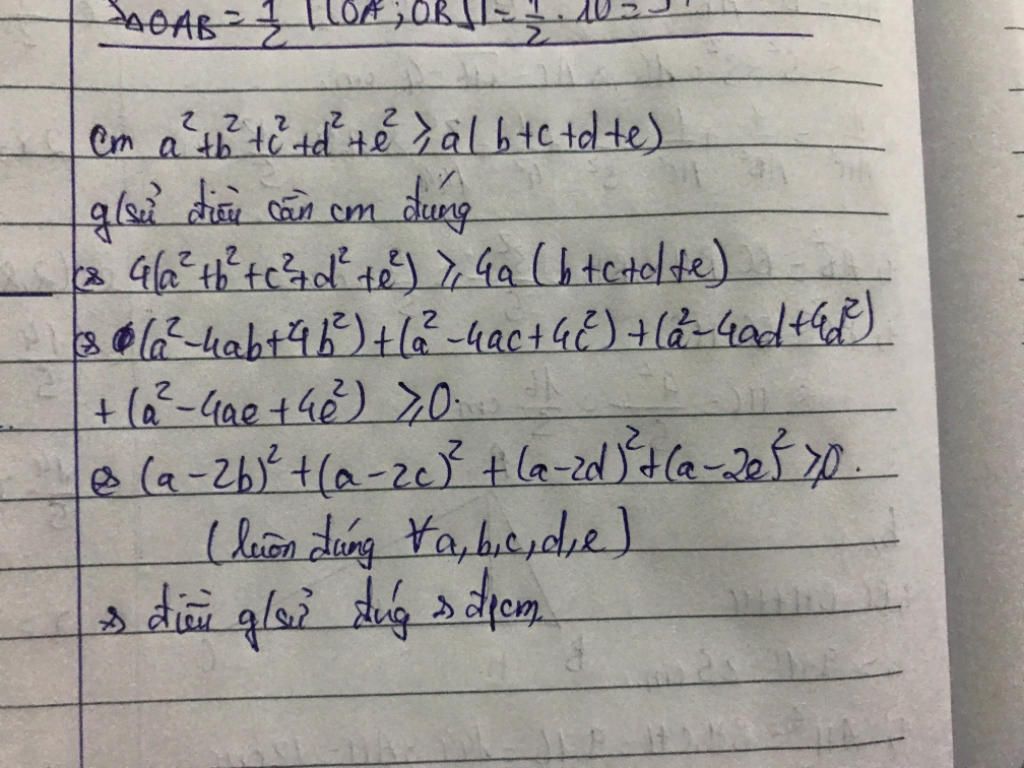 S△OAB = 1/2 |[OA ; OB]| = 1/2 . 10 = 5
cm a² + b² + c² + d² + e² ≥ a( b+c+d+e)
g/sử điều cần cm đúng
⇔ 4(a² + b² + c² + d² + e²) ≥ 4a ( b+c+d+e)
⇔ (a² - 4ab + 4b²) + (a² - 4ac + 4c²) + (a² - 4ad + 4d²)
+ (a² - 4ae + 4e²) ≥ 0.
⇔ (a - 2b)² + (a - 2c)² + (a - 2d)² + (a - 2e)² ≥ 0.
( luôn đúng ∀ a, b, c, d, e )
⇒ điều g/sử đúg ⇒ đpcm.